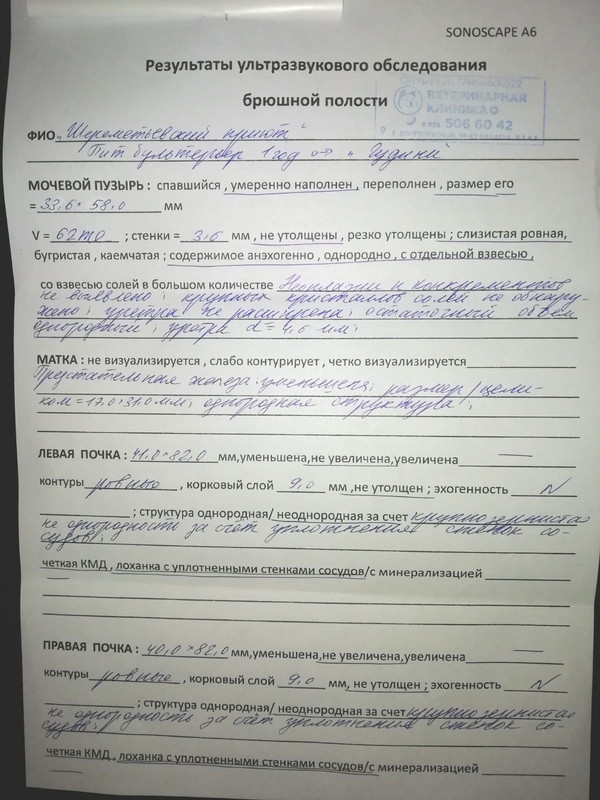 SONOSCAPE A6
Результаты ультразвукового обследования
брюшной полости
ВЕТЕРИНАРНАЯ
КЛИНИКА
506 60 42
ФИО „Шереметьевский приют"
Питбультерьер 1 год „Гудини"
МОЧЕВОЙ ПУЗЫРЬ : спавшийся , умеренно наполнен , переполнен , размер его
= 33,6 × 58,0 мм
V = 62 ml ; стенки = 3,6 мм , не утолщены , резко утолщены ; слизистая ровная,
бугристая , каемчатая ; содержимое анэхогенно , однородно , с отдельной взвесью ,
со взвесью солей в большом количестве Неоплазии и конкрементов
не выявлено ; крупных кристаллов солей не обнару-
жено ; уретра не расширена ; остаточный объем
однородный ; уретра d = 4,6 мм ;
МАТКА : не визуализируется , слабо контурирует , четко визуализируется
Предстательная железа : уменьшена ; размер / цели-
ком = 17,0 × 31,0 мм ; однородная структура ;
ЛЕВАЯ ПОЧКА : 41,0 × 82,0 мм,уменьшена,не увеличена,увеличена —
контуры ровные , корковый слой 9,0 мм ,не утолщен ; эхогенность N
; структура однородная/ неоднородная за счет крупнозернистая
не однородность за счет уплотнения стенок со-
судов ;
четкая КМД , лоханка с уплотненными стенками сосудов/с минерализацией
—
ПРАВАЯ ПОЧКА : 40,0 × 82,0 мм,уменьшена,не увеличена,увеличена —
контуры ровные , корковый слой 9,0 мм, не утолщен ; эхогенность N
; структура однородная/ неоднородная за счет крупнозернистая
не однородность за счет уплотнения стенок со-
судов ;
четкая КМД , лоханка с уплотненными стенками сосудов/с минерализацией
—